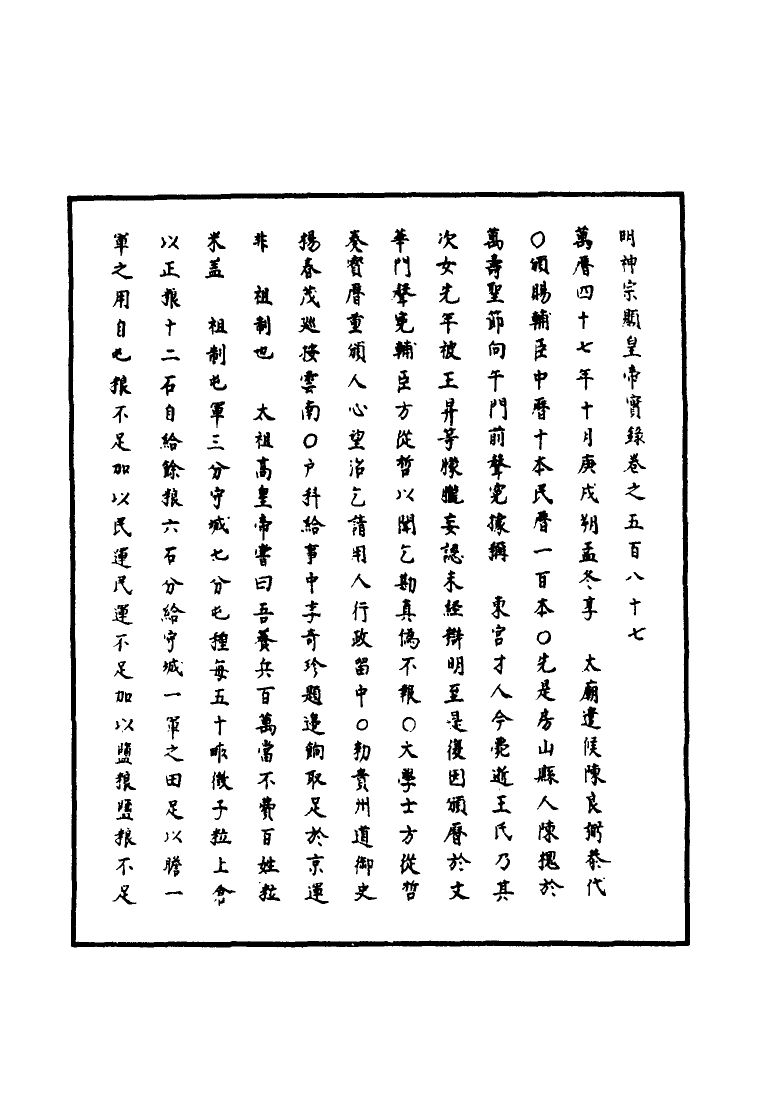 明神宗顯皇帝實錄卷之五百八十七
萬曆四十七年十月庚戌朔孟冬享　太廟遣侯陳良弼恭代
○頒賜輔臣中曆十本民曆一百本○先是房山縣人陳揌於
萬壽聖節向午門前聲冤據稱　東宮才人今薨逝王氏乃其
次女先年被王昇等朦朧妄認未經辯明至是復因頒曆於文
華門聲冤輔臣方從哲以聞乞勘真僞不報○大學士方從哲
奏寶曆重頒人心望治乞請用人行政留中○勑貴州道御史
揚春茂廵按雲南○户科給事中李奇珍題邊餉取足於京運
非　祖制也　太祖高皇帝嘗曰吾養兵百萬當不費百姓粒
米盖　祖制屯軍三分守城七分屯種每五十畝徵子粒上倉
以正粮十二石自給餘粮六石分給守城一軍之田足以贍一
軍之用自屯粮不足加以民運民運不足加以鹽粮鹽粮不足